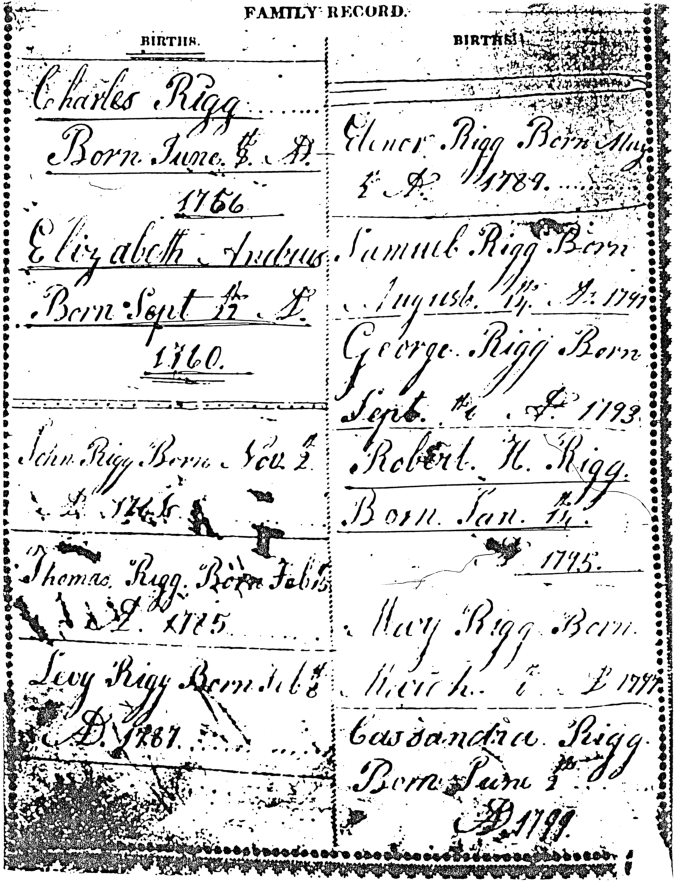 FAMILY RECORD.
BIRTHS.
Charles Rigg
Born June 8th AD.
1756
Elizabeth Andrews
Born Sept 12th A.
1760.
John Rigg Born Nov. 2
A
Thomas Rigg Born Feb 15
A. 1785
Levy Rigg Born Feb 8
AD. 1787
BIRTHS.
Elenor Rigg Born May
5 A. 1789
Samuel Rigg Born
August. 14th A. 1791
George Rigg Born
Sept. A. 1793
Robert H. Rigg.
Born Jan. 14th
1795.
Mary Rigg Born
March A 1797
Cassandra Rigg
Born June 2
AD. 1799